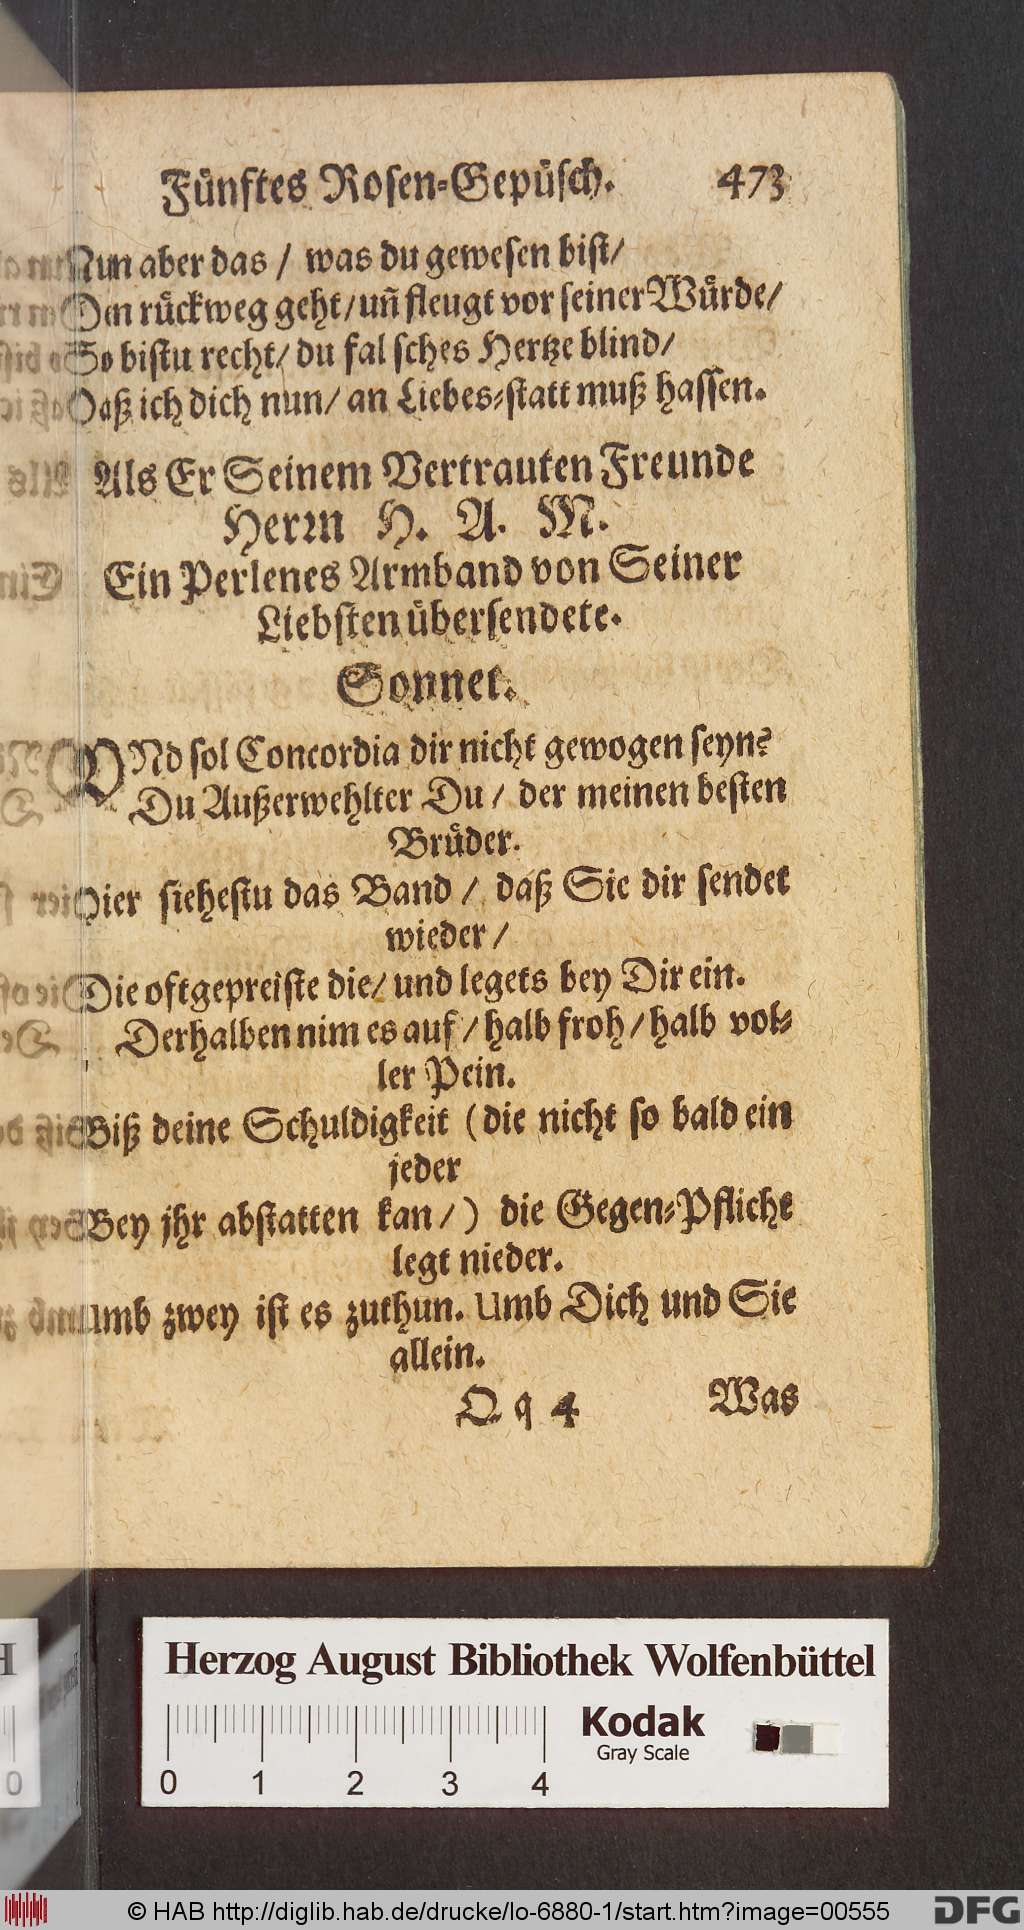 Fünftes Rosen-Gepüsch. 473
Nun aber das / was du gewesen bist/
Den rückweg geht/ uñ fleugt vor seiner Würde/
So bistu recht/ du falsches Hertze blind/
Daß ich dich nun/ an Liebes-statt muß hassen.
Als Er Seinem Vertrauten Freunde
Herrn H. A. M.
Ein Perlenes Armband von Seiner
Liebsten übersendete.
Sonnet.
VNd sol Concordia dir nicht gewogen seyn?
Du Außerwehlter Du / der meinen besten
Brüder.
Hier siehestu das Band / daß Sie dir sendet
wieder /
Die oftgepreiste die/ und legets bey Dir ein.
Derhalben nim es auf / halb froh / halb vol-
ler Pein.
Biß deine Schuldigkeit (die nicht so bald ein
jeder
Bey jhr abstatten kan /) die Gegen-Pflicht
legt nieder.
Umb zwey ist es zuthun. Umb Dich und Sie
allein.
Q q 4 Was
Herzog August Bibliothek Wolfenbüttel
Kodak
Gray Scale
0 1 2 3 4
0
© HAB http://diglib.hab.de/drucke/lo-6880-1/start.htm?image=00555
DFG